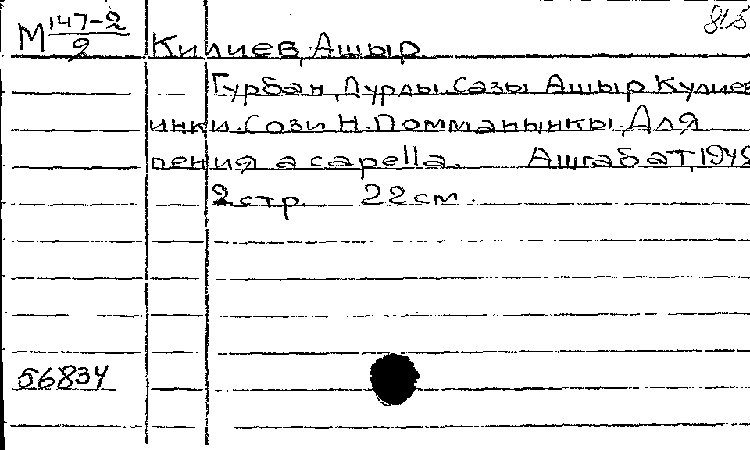 815
М 147-2/2
Килиев, Ашыр
Гурбан, Дурды. Сазы Ашыр Кулиев
инки. Сози Н. Помманынкы, Для
пения a capella. Ашгабат, 1949
2 стр. 22 см.
56834